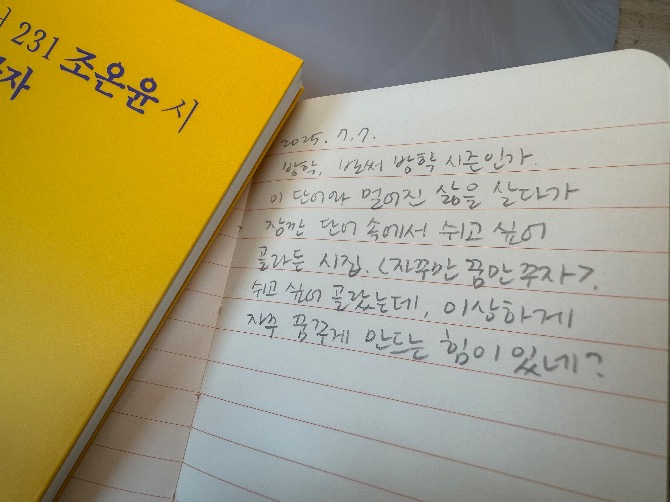 231 조온윤 시
2025. 7. 7.
방학, 벌써 방학 시즌인가.
이 단어와 멀어진 삶을 살다가
잠깐 단어 속에서 쉬고 싶어
골라든 시집. <자꾸만 꿈만 꾸자>.
쉬고 싶어 골랐는데, 이상하게
자주 꿈꾸게 만드는 힘이 있네?